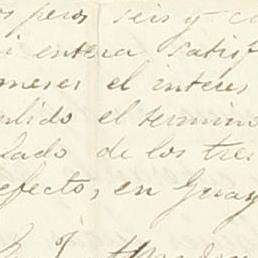 os pesos seis y c
i entera satisf
meses el interes
plido el termino
lado de los tres
efecto, en Guay